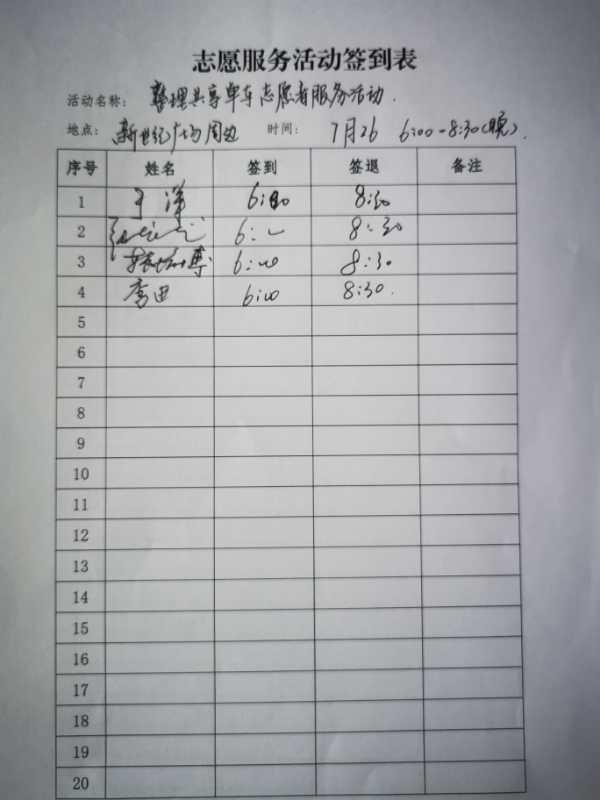 志愿服务活动签到表
活动名称： 整理共享单车志愿者服务活动.
地点： 新世纪广场周边 时间： 7月26 6:00-8:30(晚).
序号 姓名 签到 签退 备注
1 于洋 6:00 8:30
2 6: 8:30
3 博 6:00 8:30
4 李田 6:00 8:30.
5
6
7
8
9
10
11
12
13
14
15
16
17
18
19
20